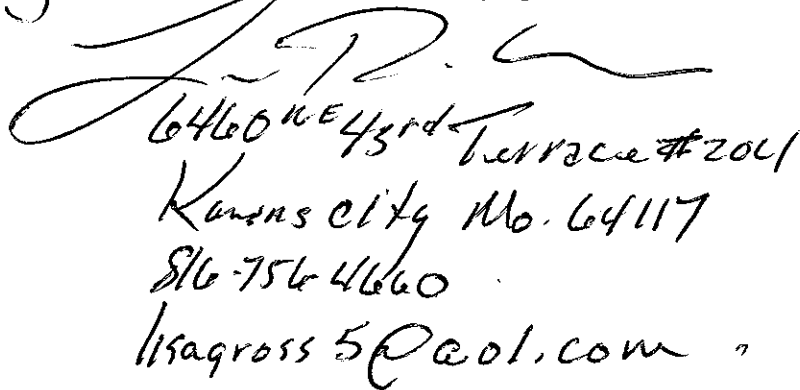 6460 NE 43rd Terrace #204
Kansas City Mo. 64117
816-756-4660
lisagross5@aol.com